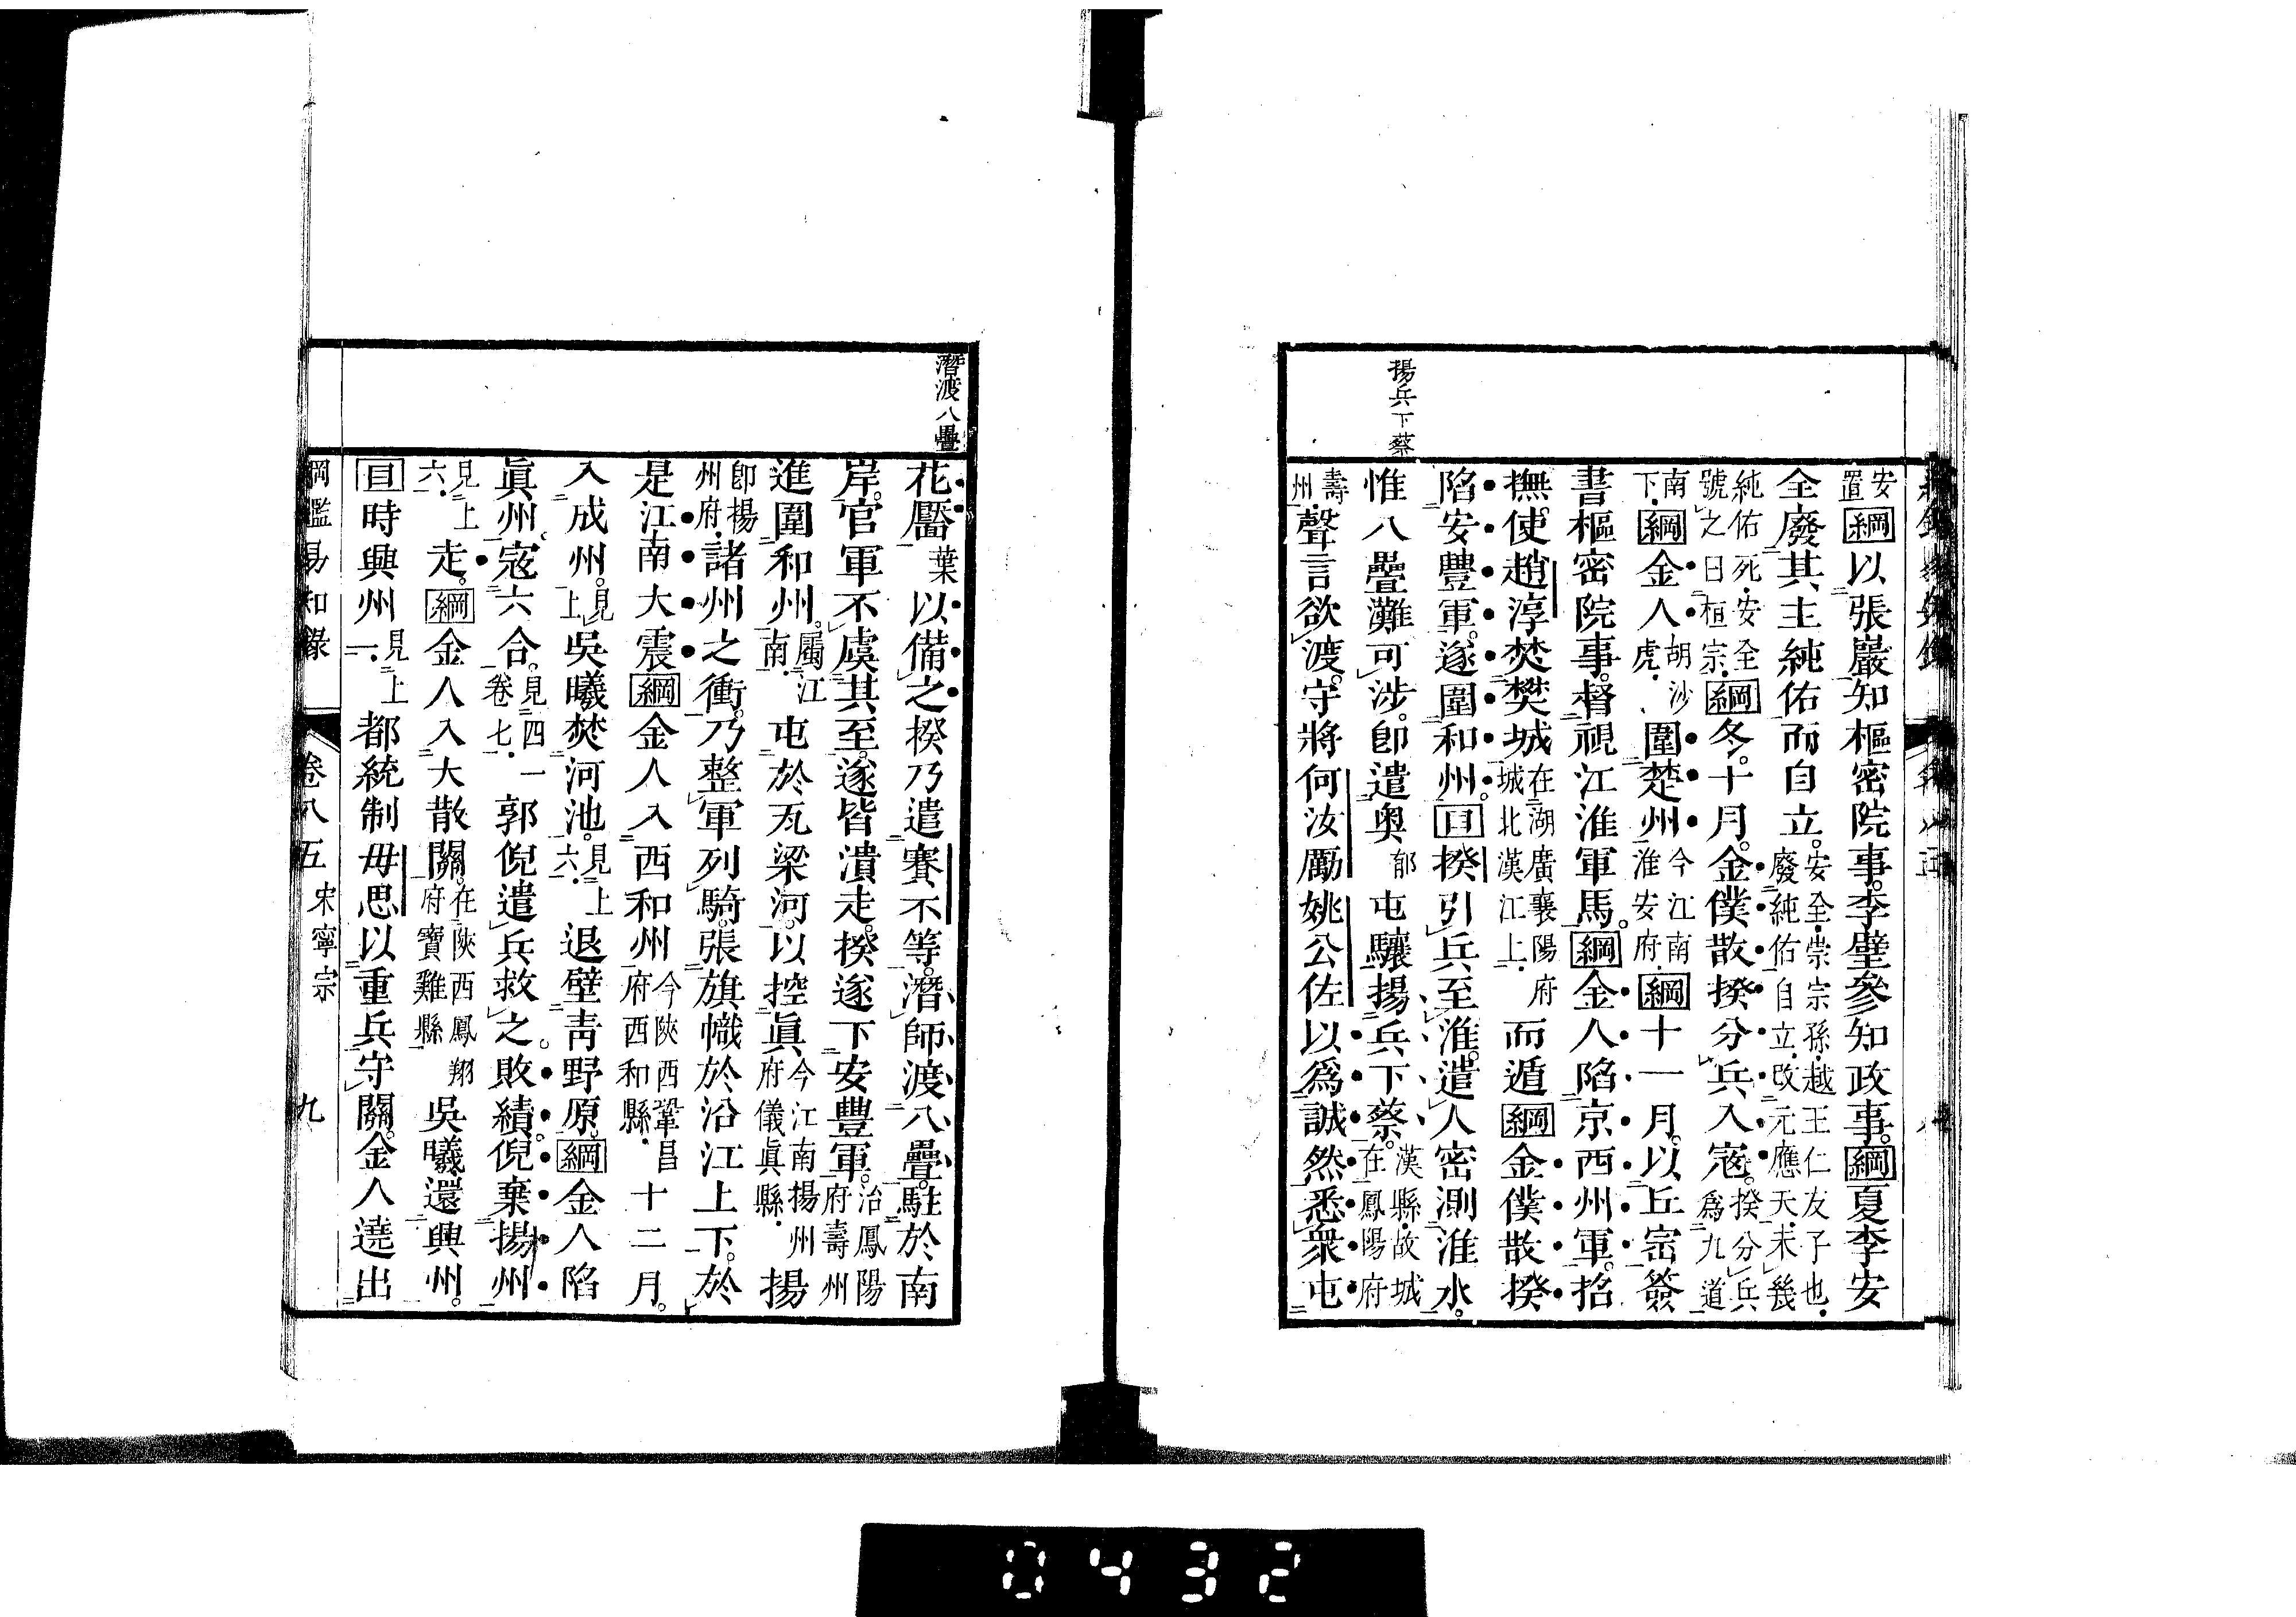 揚兵下蔡
安置綱以張巖知樞密院事。李壁參知政事。綱夏李安
全廢其主純佑而自立。安全崇宗孫越王仁友子也廢純佑自立改元應天未幾
純佑死安全號之曰桓宗綱冬十月。金僕散揆分兵入寇。揆分兵爲九道
南下綱金人胡沙虎圍楚州今江南淮安府綱十一月。以丘崈簽
書樞密院事。督視江淮軍馬。綱金人陷京西州軍。招
撫使趙淳焚樊城在湖廣襄陽府城北漢江上而遁綱金僕散揆
陷安豐軍。遂圍和州。目揆引兵至淮。遣人密測淮水。
惟八疊灘可涉。即遣奧郁屯驤揚兵下蔡。漢縣故城在鳳陽府
壽州聲言欲渡。守將何汝勵姚公佐以爲誠然悉衆屯
潛渡八疊
花靨葉以備之揆乃遣賽不等。潛師渡八疊。駐於南
岸。官軍不虞其至。遂皆潰走。揆遂下安豐軍。治鳳陽府壽州
進圍和州。屬江南屯於瓦梁河。以控眞今江南揚州府儀眞縣揚
即揚州府諸州之衝。乃整軍列騎。張旗幟於沿江上下。於
是江南大震綱金人入西和州今陝西鞏昌府西和縣十二月。
入成州。見上吳曦焚河池。見上六退壁青野原。綱金人陷
眞州。寇六合。見四一卷七郭倪遣兵救之。敗績。倪棄揚州
見上六走。綱金人入大散關。在陝西鳳翔府寶雞縣吳曦還興州。
目時興州見上一都統制毋思以重兵守關。金人遶出
綱鑑易知錄 卷八五 宋寧宗 九
0432